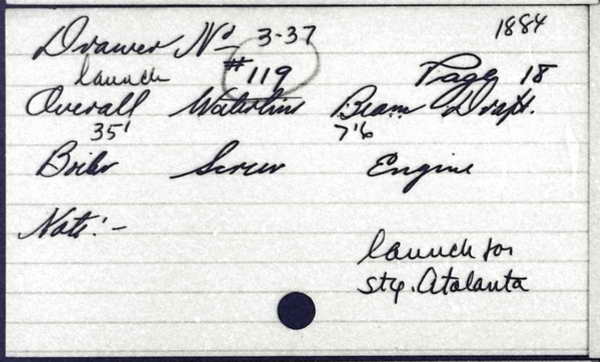 1884
Drawer No 3-37
launch #119 Page 18
Overall Waterline Beam Draft.
35' 7'6
Boiler Screw Engine
Note:-
launch for
sty. Atalanta